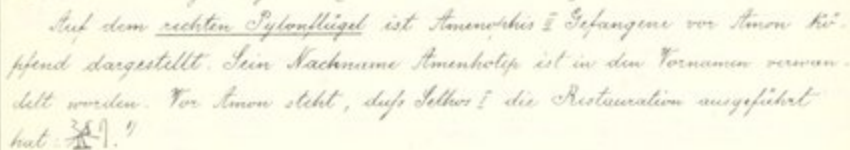 Auf dem rechten Pylonflügel ist Amenophis II Gefangene vor Amon Kö-
pfend dargestellt. Sein Nachname Amenhotep ist in den Vornamen verwan-
delt worden. Vor Amon steht, dafs Sethos I die Restauration ausgeführt
hat: 1)